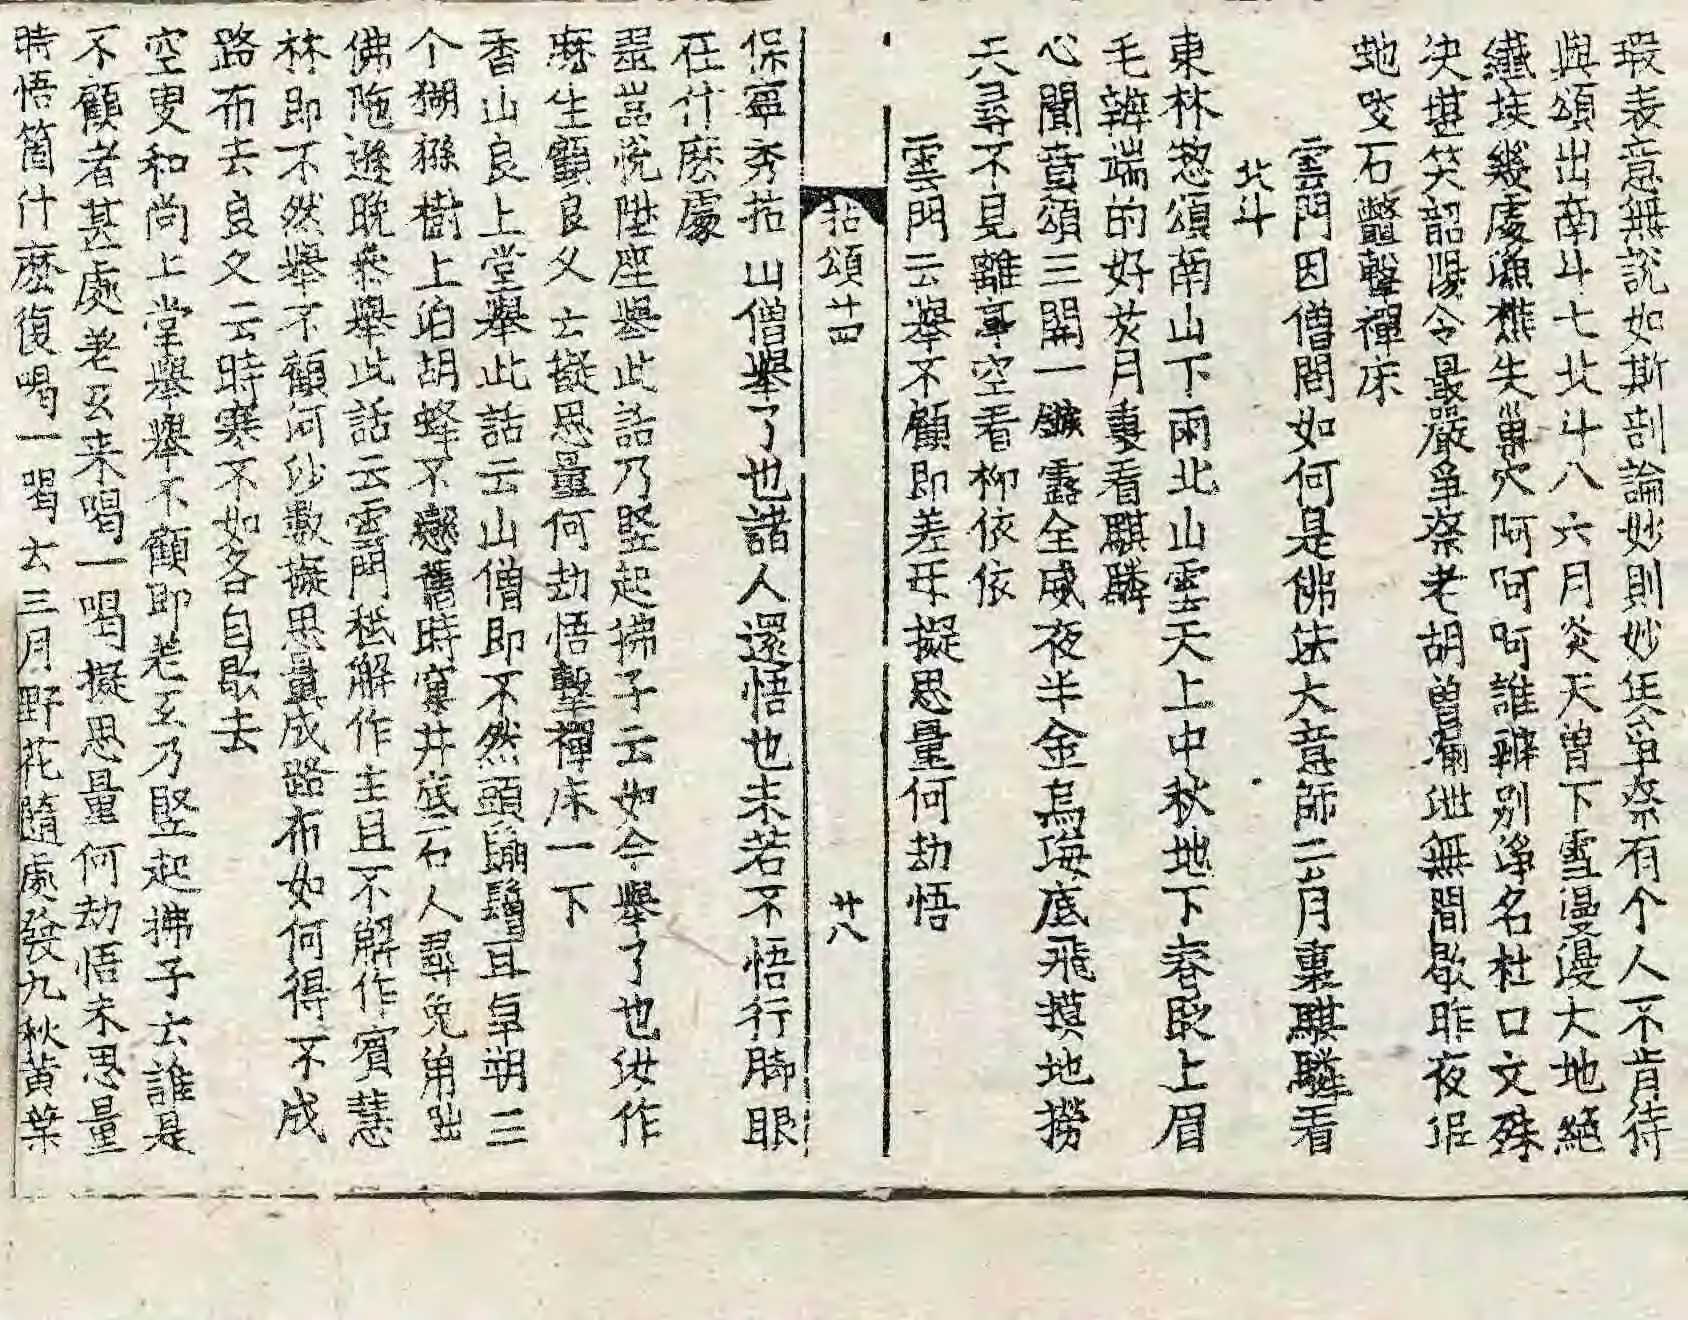 瑕表意無說如斯剖論妙則妙矣爭奈有个人不肯待
與頌出南斗七北斗八六月炎天曽下雪漫漫大地絕
纖埃幾處漁樵失巢穴阿呵呵誰辨別淨名杜口文殊
決堪笑韶陽令最嚴爭奈老胡曽漏泄無間歇昨夜泥
虵咬石鼈擊禪床
雲門因僧問如何是佛法大意師云月裏騏驎看
北斗
東林惣頌南山下雨北山雲天上中秋地下春眨上眉
毛辨端的好於月裏看騏驎
心聞賁頌三開一鏃露全威夜半金烏海底飛摸地撈
天尋不見離亭空看柳依依
雲門云擧不顧即差互擬思量何劫悟
拈頌廿四 廿八
保寧秀拈 山僧擧了也諸人還悟也未若不悟行脚眼
在什麽處
翠嵓悅陞座擧此話乃竪起拂子云如今擧了也汝作
麽生顧良久云擬思量何劫悟擊禪床一下
香山良上堂擧此話云山僧即不然頭鬅鬙耳卓朔三
个猢猻樹上泊胡蜂不戀舊時窠井底石人尋兎角
佛陁遜晚叅擧此話云雲門秪解作主且不解作賓慧
林即不然擧不顧河沙數擬思量成路布如何得不成
路布去良久云時寒不如各自歇去
空叟和尚上堂擧擧不顧即差互乃竪起拂子云誰是
不顧者甚處差互来喝一喝擬思量何劫悟未思量
時悟箇什麽復喝一喝云三月野花隨處發九秋黃葉